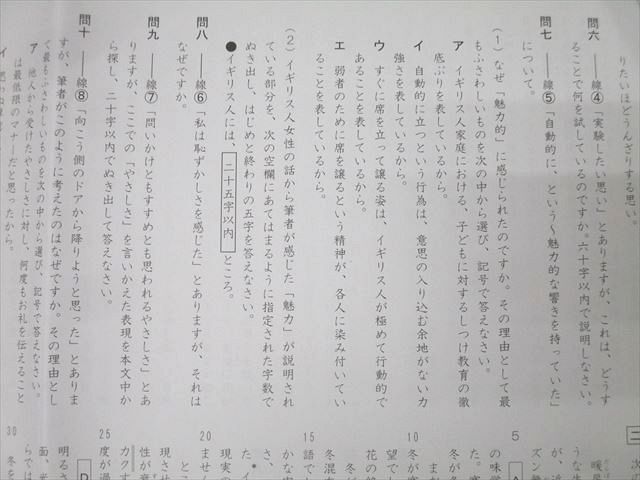 りたいほどうんざりする思い。
問六 ――線④「実験したい思い」とありますが、これは、どうす
ることで何を試しているのですか。六十字以内で説明しなさい。
問七 ――線⑤「自動的に、という～魅力的な響きを持っていた」
について。
(1) なぜ「魅力的」に感じられたのですか。その理由として最
もふさわしいものを次の中から選び、記号で答えなさい。
ア イギリス人家庭における、子どもに対するしつけ教育の徹
底ぶりを表しているから。
イ 自動的に立つという行為は、意思の入り込む余地がない力
強さを表しているから。
ウ すぐに席を立って譲る姿は、イギリス人が極めて行動的で
あることを表しているから。
エ 弱者のために席を譲るという精神が、各人に染み付いてい
るから。
(2) イギリス人女性の話から筆者が感じた「魅力」が説明され
ている部分を、次の空欄にあてはまるように指定された字数で
ぬき出し、はじめと終わりの五字を答えなさい。
●イギリス人には、二十五字以内ところ。
問八 ――線⑥「私は恥ずかしさを感じた」とありますが、それは
なぜですか。
問九 ――線⑦「問いかけともすすめとも思われるやさしさ」とあ
りますが、ここでの「やさしさ」を言いかえた表現を本文中か
ら探し、二十字以内でぬき出して答えなさい。
問十 ――線⑧「向こう側のドアから降りようと思った」とありま
すが、筆者がこのように考えたのはなぜですか。その理由とし
て最もふさわしいものを次の中から選び、記号で答えなさい。
ア 他人から受けたやさしさに対し、何度もお礼を伝えること
は最低限のマナーだと思ったから。
イ
二 次
暖房
うな生
が、近
ズン
5
A
の味覚
た。寒
冬が冬
また
冬が寒
10
望で
花の
冬に
冬混
語で
15
かな
さ、
た。イ
現実の
ません
20
とこ
現させ
性が
カクす
度が過
25
D
明るさ
面、光
らでは
冬を
30